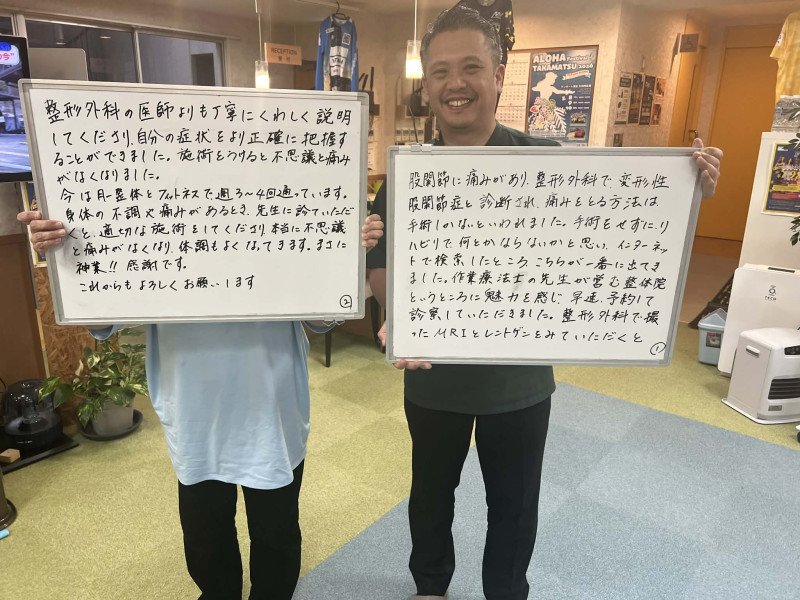 股関節に痛みがあり、整形外科で、変形性
股関節症と診断され、痛みをとる方法は
手術しかないといわれました。手術をせずに、リ
ハビリで何とかならないかと思い、インターネッ
トで検索したところ、こちらが一番に出てき
ました。作業療法士の先生が営む整体院
というところに魅力を感じ、早速、予約して
診察していただきました。整形外科で撮
ったMRIとレントゲンをみていただくと
①
整形外科の医師よりも丁寧にくわしく説明
してくださり、自分の症状をより正確に把握す
ることができました。施術をうけると不思議と痛み
がなくなりました。
今は月一整体とフィットネスで週3〜4回通っています。
身体の不調や痛みがあるとき、先生に診ていただ
くと、適切な施術をしてくださり本当に不思議
と痛みがなくなり、体調もよくなってきます。まさに
神業!! 感謝です。
これからもよろしくお願いします
②
RECEPTION
ALOHA
Festival
TAKAMATSU 2026